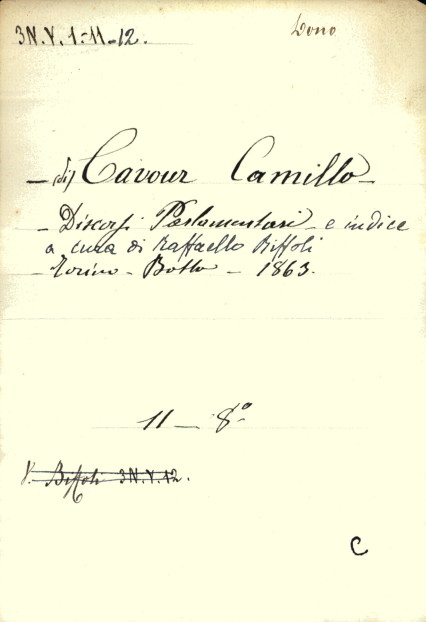 3N.V.1-11-12.
Dono
- (di) Cavour Camillo -
- Discorsi Parlamentari - e indice
a cura di Raffaello Biffoli
Torino - Botto - 1863.
11 - 8°
V. Biffoli 3N.V.12.
C